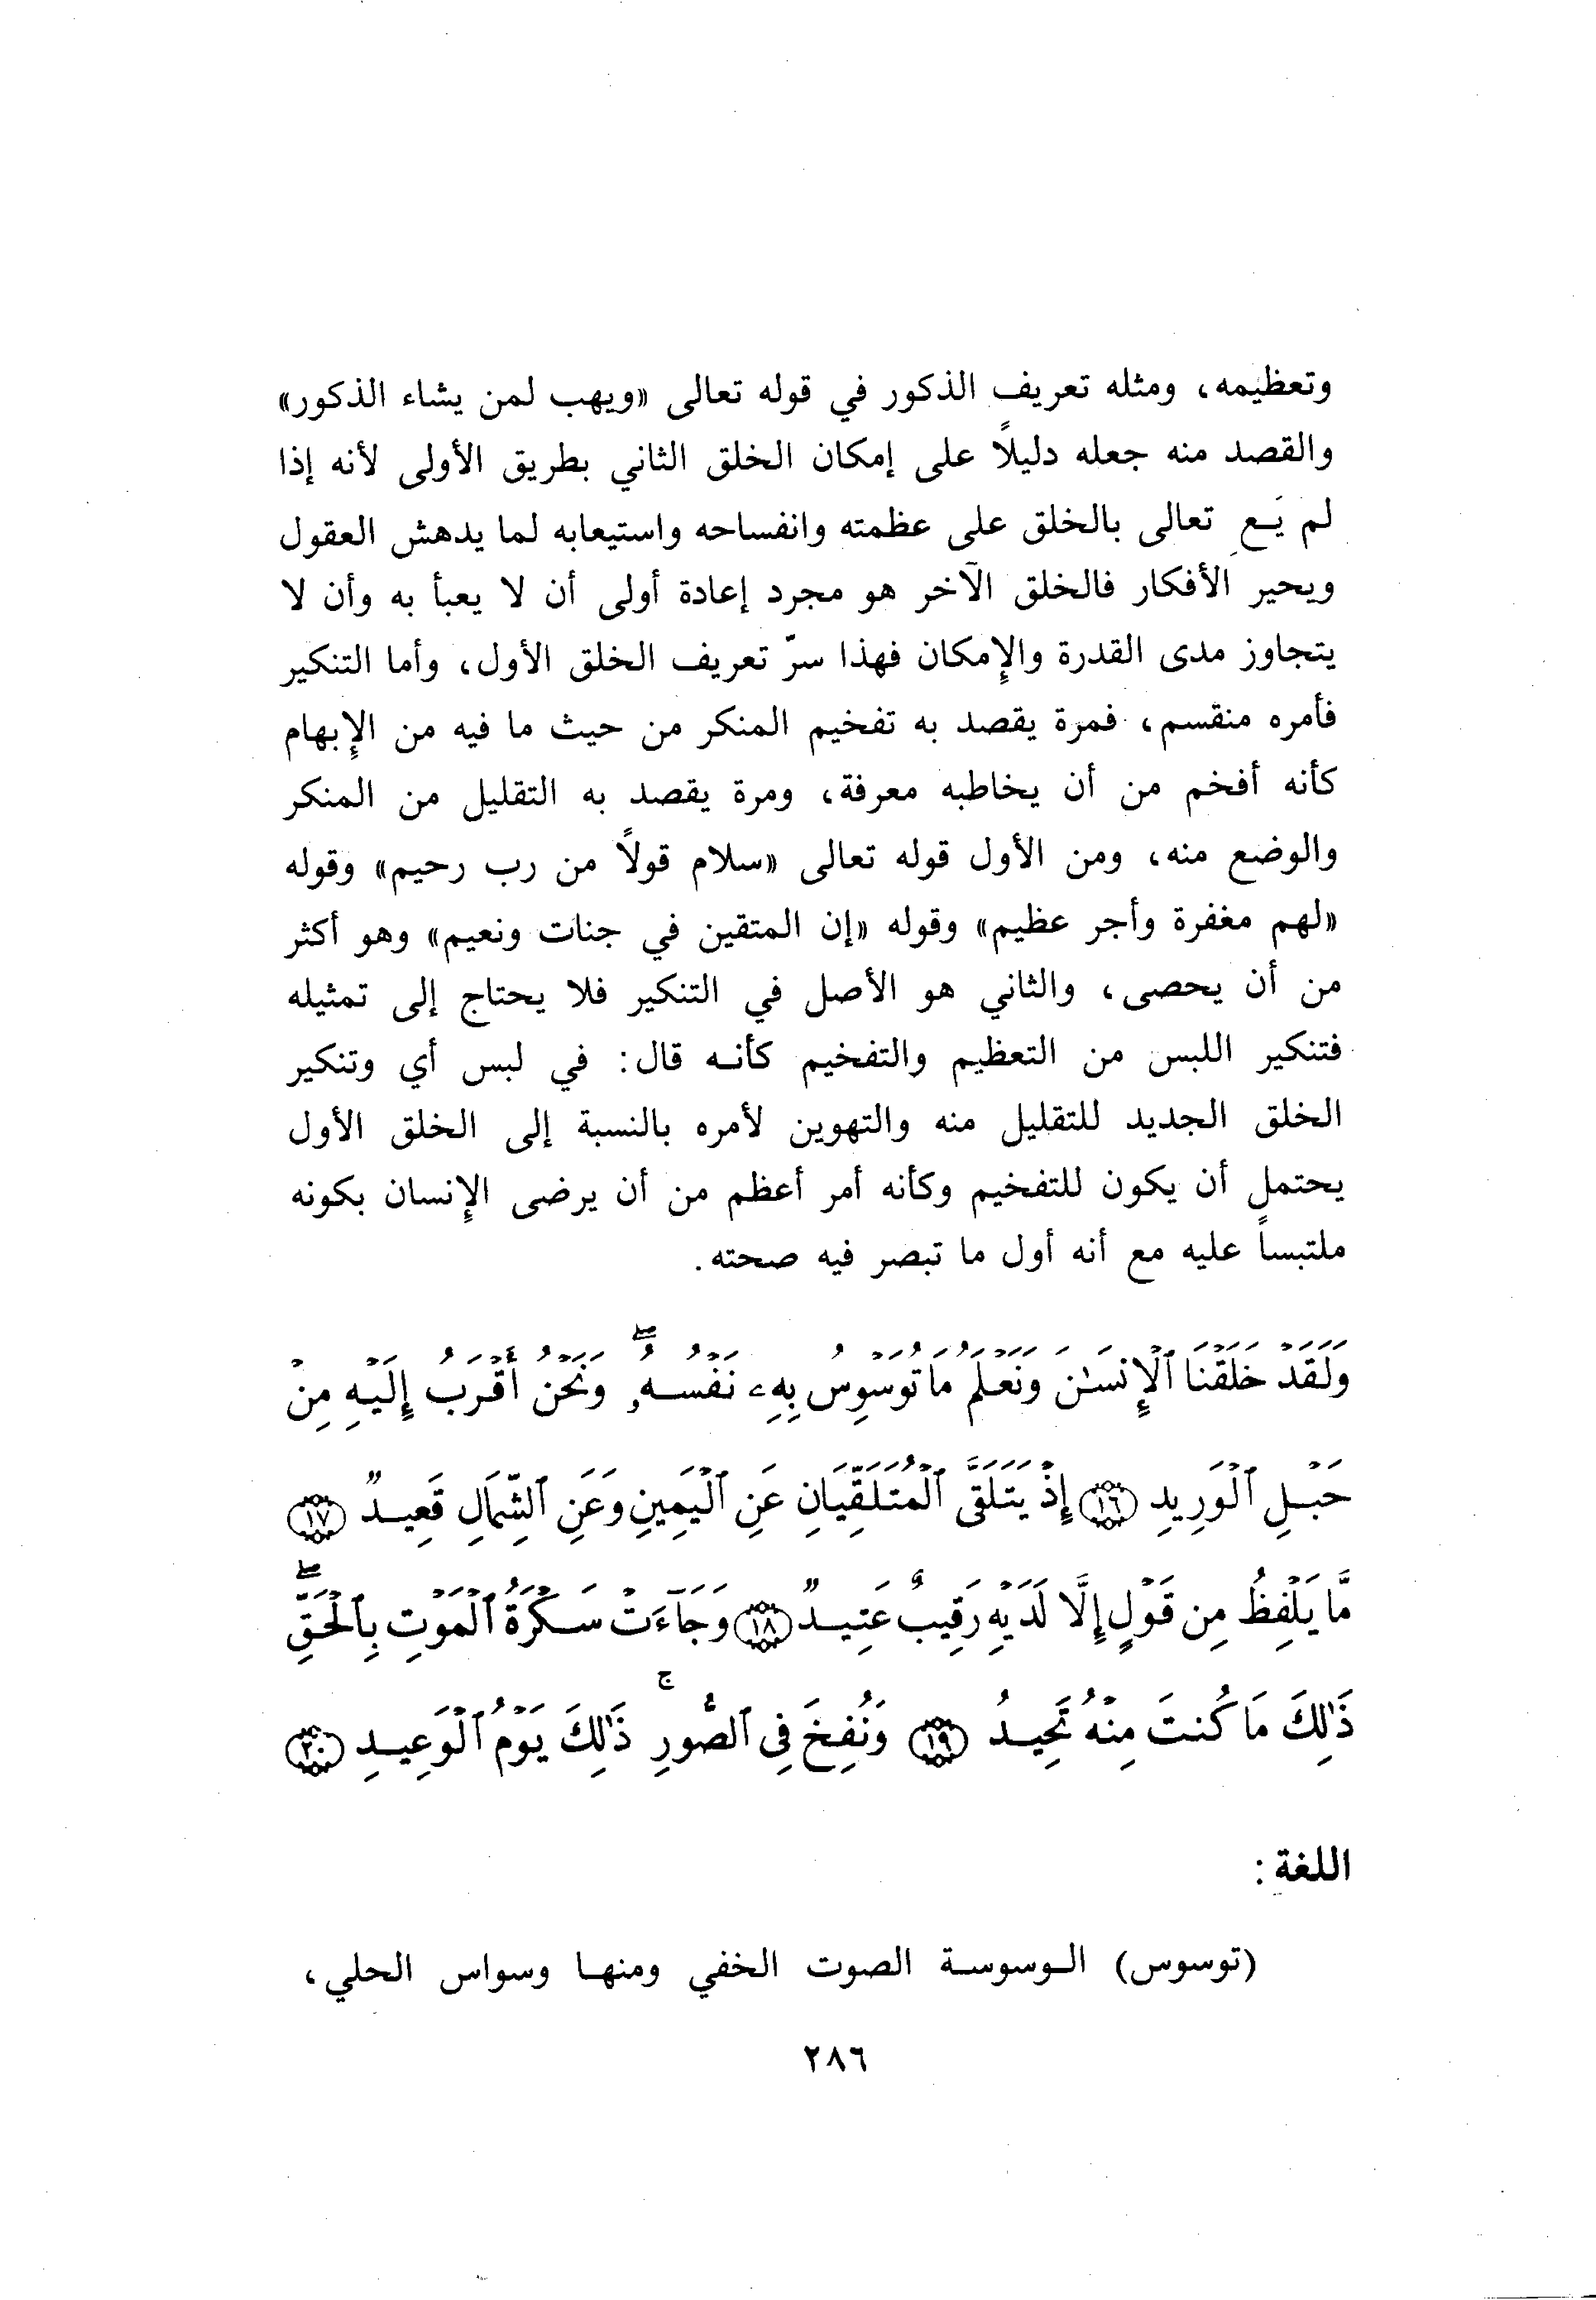 وتعظيمه، ومثله تعريف الذكور في قوله تعالى «ويهب لمن يشاء الذكور»
والقصد منه جعله دليلاً على إمكان الخلق الثاني بطريق الأولى لأنه إذا
لم يَـعِ تعالى بالخلق على عظمته وانفساحه واستيعابه لما يدهش العقول
ويحير الأفكار فالخلق الآخر هو مجرد إعادة أولى أن لا يعبأ به وأن لا
يتجاوز مدى القدرة والإمكان فهذا سرّ تعريف الخلق الأول، وأما التنكير
فأمره منقسم، فمرة يقصد به تفخيم المنكر من حيث ما فيه من الإبهام
كأنه أفخم من أن يخاطبه معرفة، ومرة يقصد به التقليل من المنكر
والوضع منه، ومن الأول قوله تعالى «سلام قولاً من رب رحيم» وقوله
«لهم مغفرة وأجر عظيم» وقوله «إن المتقين في جنات ونعيم» وهو أكثر
من أن يحصى، والثاني هو الأصل في التنكير فلا يحتاج إلى تمثيله
فتنكير اللبس من التعظيم والتفخيم كأنه قال: في لبس أي وتنكير
الخلق الجديد للتقليل منه والتهوين لأمره بالنسبة إلى الخلق الأول
يحتمل أن يكون للتفخيم وكأنه أمر أعظم من أن يرضى الإنسان بكونه
ملتبساً عليه مع أنه أول ما تبصر فيه صحته.
وَلَقَدْ خَلَقْنَا ٱلْإِنسَـٰنَ وَنَعْلَمُ مَا تُوَسْوِسُ بِهِۦ نَفْسُهُۥ ۖ وَنَحْنُ أَقْرَبُ إِلَيْهِ مِنْ
حَبْلِ ٱلْوَرِيدِ ١٦ إِذْ يَتَلَقَّى ٱلْمُتَلَقِّيَانِ عَنِ ٱلْيَمِينِ وَعَنِ ٱلشِّمَالِ قَعِيدٌ ١٧
مَّا يَلْفِظُ مِن قَوْلٍ إِلَّا لَدَيْهِ رَقِيبٌ عَتِيدٌ ١٨ وَجَآءَتْ سَكْرَةُ ٱلْمَوْتِ بِٱلْحَقِّ ۖ
ذَٰلِكَ مَا كُنتَ مِنْهُ تَحِيدُ ١٩ وَنُفِخَ فِى ٱلصُّورِ ۚ ذَٰلِكَ يَوْمُ ٱلْوَعِيدِ ٢٠
اللغة :
(توسوس) الوسوسة الصوت الخفي ومنها وسواس الحلي،
٢٨٦